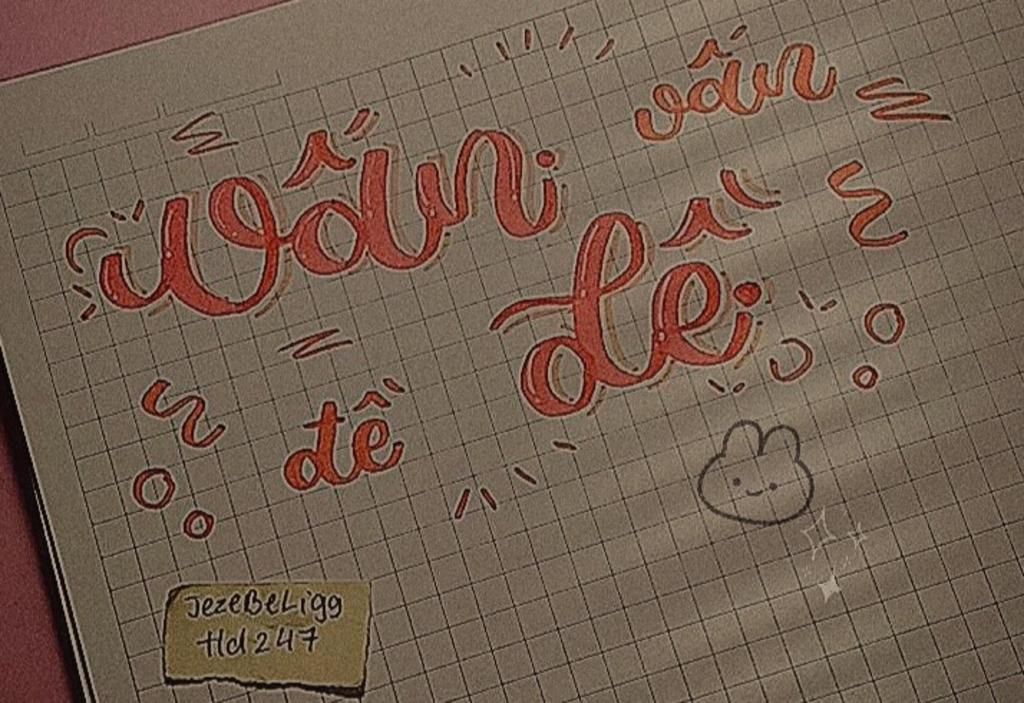 vấn
vấn
đề
đề
JezeBeLigg
tld247